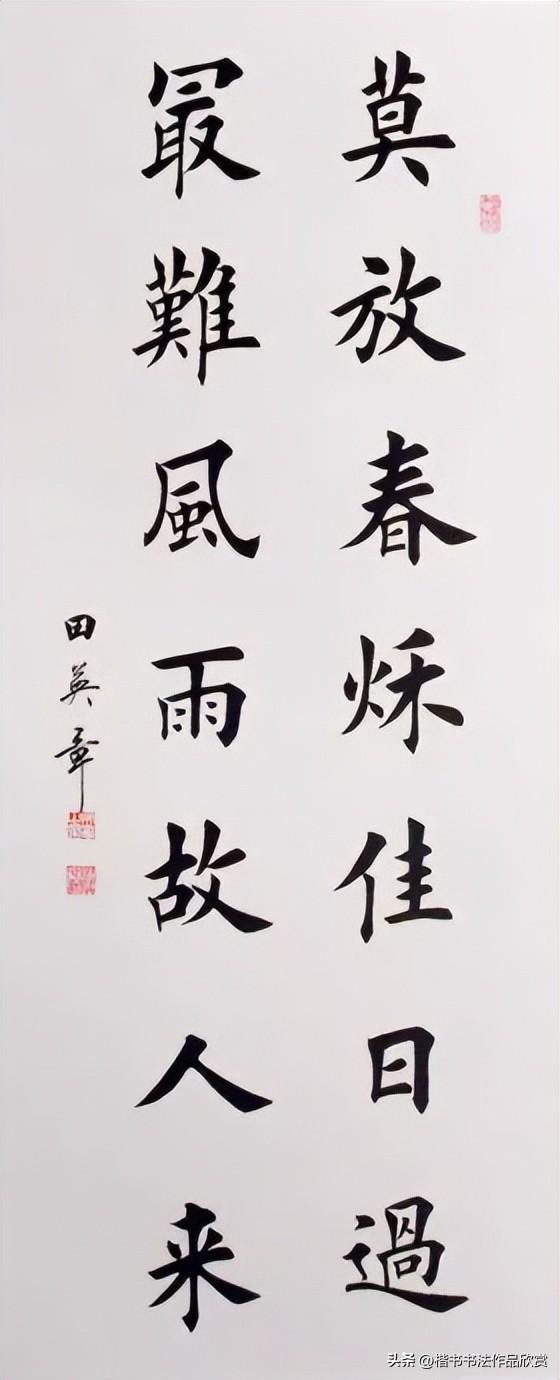 莫放春烁佳日過
冣難風雨故人来
田英章
头条 @楷书书法作品欣赏